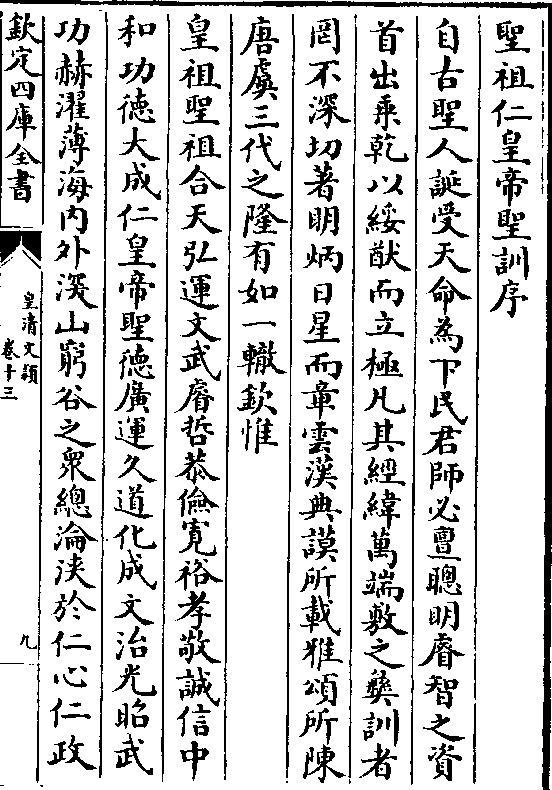 聖祖仁皇帝聖訓序
自古聖人誕受天命為下民君師必亶聰明睿智之資
首出乘乾以綏猷而立極凡其經緯萬端敷之彝訓者
罔不深切著明炳日星而章雲漢典謨所載雅頌所陳
唐虞三代之隆有如一轍欽惟
皇祖聖祖合天弘運文武睿哲恭儉寛裕孝敬誠信中
和功德大成仁皇帝聖德廣運久道化成文治光昭武
功赫濯薄海内外深山窮谷之衆總淪浹於仁心仁政
欽定四庫全書
皇清文穎
卷十三
九